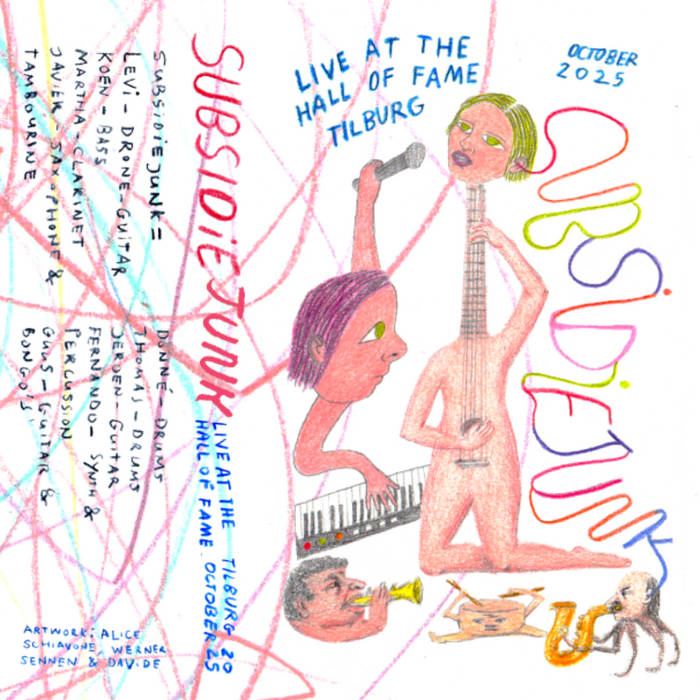 LIVE AT THE
HALL OF FAME
TILBURG
OCTOBER
2025
SUBSIDIEJUNK
SUBSIDIEJUNK
LIVE AT THE TILBURG 20
HALL OF FAME OCTOBER 25
SUBSIDIEJUNK =
LEVI - DRONE-GUITAR
KOEN - BASS
MARTHA - CLARINET
JAVIER - SAXOPHONE &
TAMBOURINE
DONNÉ - DRUMS
THOMAS - DRUMS
JEROEN - GUITAR
FERNANDO - SYNTH &
PERCUSSION
GUUS - GUITAR &
BONGO'S
ARTWORK: ALICE
SCHIAVONE, WERNER
SENNEN & DAVIDE